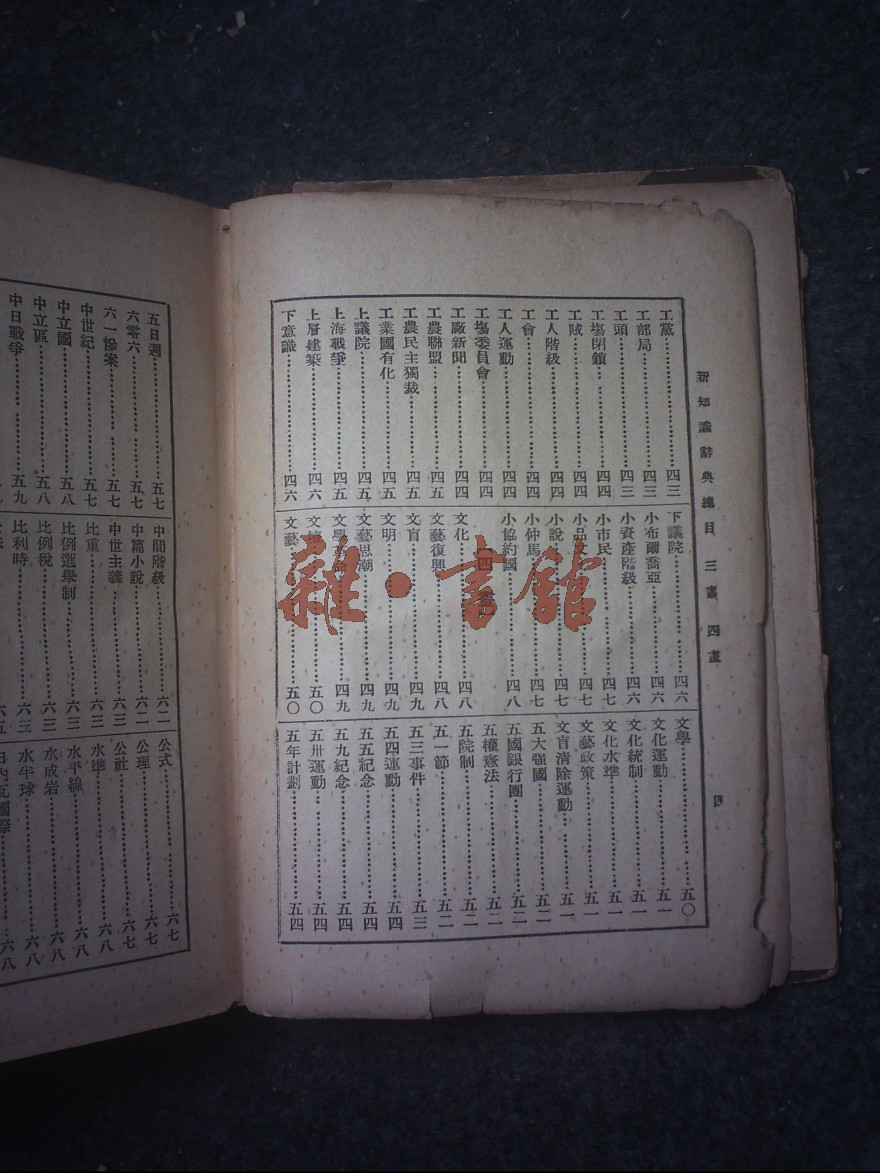 新知識辭典總目 三畫 四畫
四
工黨……四三
工部局……四三
工頭……四三
工場閉鎖……四四
工賊……四四
工人階級……四四
工會……四四
工人運動……四四
工場委員會……四四
工廠新聞……四四
工農聯盟……四五
工農民主獨裁……四五
工業國有化……四五
上議院……四五
上海戰爭……四五
上層建築……四六
下意識……四六
下議院……四六
小布爾喬亞……四六
小資產階級……四六
小市民……四七
小品文……四七
小說……四七
小仲馬……四七
小協約國……四八
四畫
文化……四八
文藝復興……四八
文盲……四九
文明……四九
文藝思潮……四九
文學革命……四九
文壇……五〇
文藝……五〇
文學……五〇
文化運動……五一
文化統制……五一
文化水準……五一
文藝政策……五一
文盲清除運動……五一
五大強國……五二
五國銀行團……五二
五權憲法……五二
五院制……五二
五一節……五二
五三事件……五三
五四運動……五四
五五紀念……五四
五九紀念……五四
五卅運動……五四
五年計劃……五四
五日週……五七
六零六……五七
六一慘案……五七
中世紀……五七
中立國……五八
中立區……五八
中日戰爭……五九
中間階級……六二
中篇小說……六二
中世主義……六三
比重……六三
比例選舉制……六三
比例稅……六三
比利時……六三
公式……六七
公理……六七
公社……六七
水準……六八
水平線……六八
水成岩……六八
水半球……六八
雜·書館